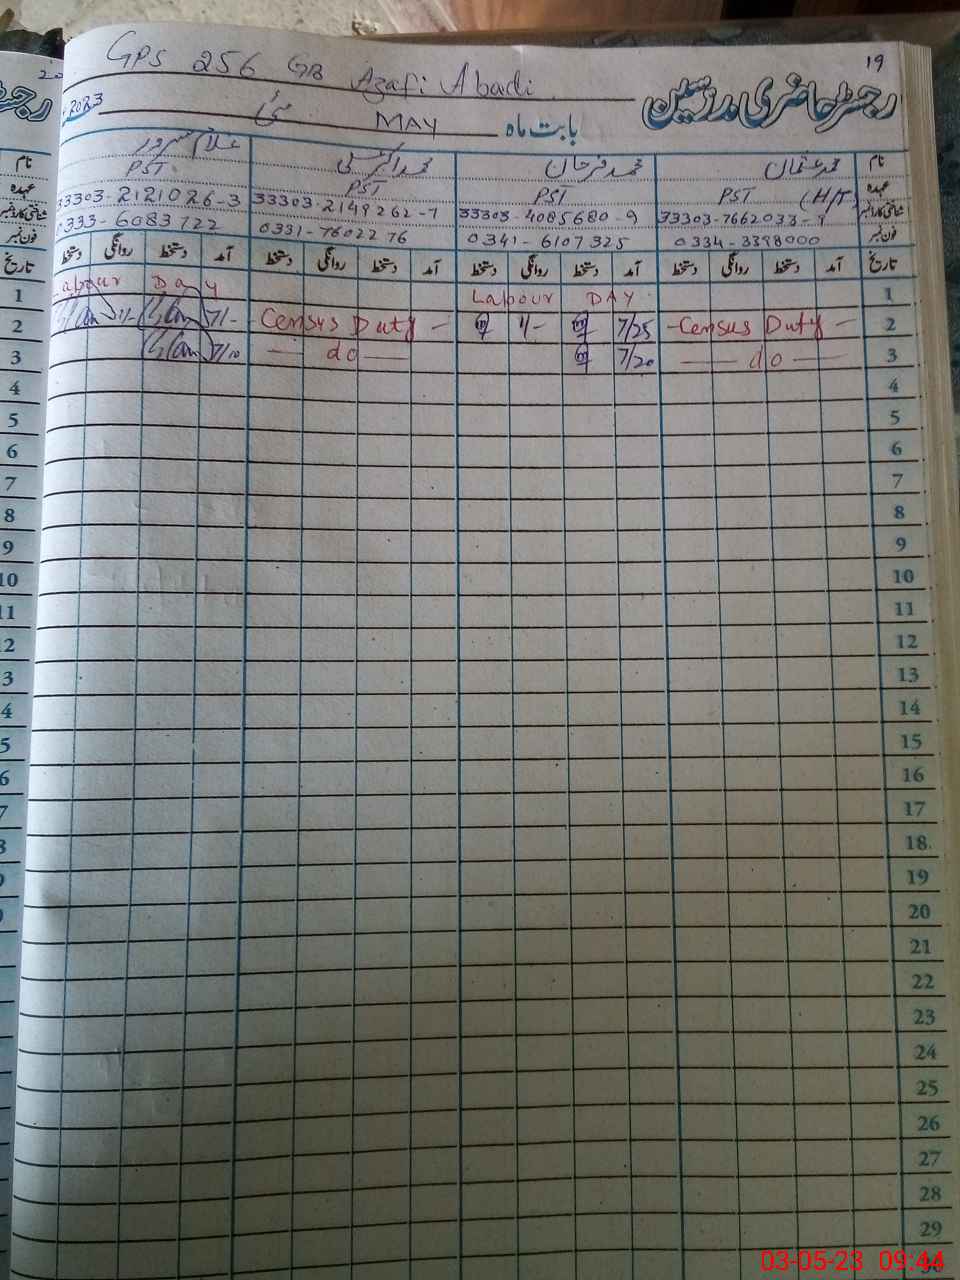 GPS 256 GB Azafi Abadi
19
رجسٹر حاضری مدرسین
بابت ماہ MAY مئی 2023
نام محمد عثمان محمد فرحان محمد غلام سرور
عہدہ PST (H/T) PST PST PST
شناختی کارڈ نمبر 33303-7662033-9 33303-4085680-9 33303-2149262-7 33303-2121026-3
فون نمبر 0334-3398000 0341-6107325 0331-7602276 0333-6083722
تاریخ آمد دستخط روانگی دستخط آمد دستخط روانگی دستخط آمد دستخط روانگی دستخط آمد دستخط روانگی دستخط
Labour Day Labour DAY 1
1/- 7/- Census Duty - 1/- 7/25 - Census Duty - 2
7/10 — do — 7/20 — do — 3
4
5
6
7
8
9
10
11
12
13
14
15
16
17
18
19
20
21
22
23
24
25
26
27
28
29
30
03-05-23 09:44